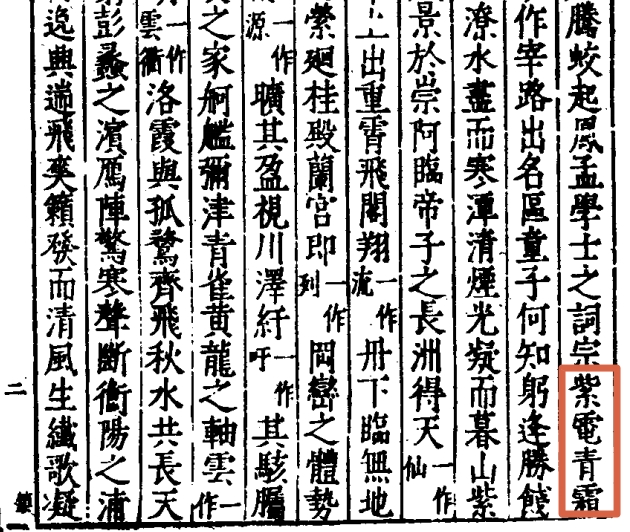 騰蛟起鳳孟學士之詞宗紫電青霜
作宰路出名區童子何知躬逢勝餞
潦水盡而寒潭清煙光凝而暮山紫
景於崇阿臨帝子之長洲得天一作仙
上出重霄飛閣翔一作流丹下臨無地
縈廻桂殿蘭宮即一作列岡巒之體勢
曠其盈視川澤紆一作吁其駭矚
之家舸艦彌津青雀黄龍之軸雲一作
雲衢洛霞與孤鶩齊飛秋水共長天
彭蠡之濱鴈陣驚寒聲斷衡陽之浦
逸興遄飛爽籟發而清風生纖歌凝
二